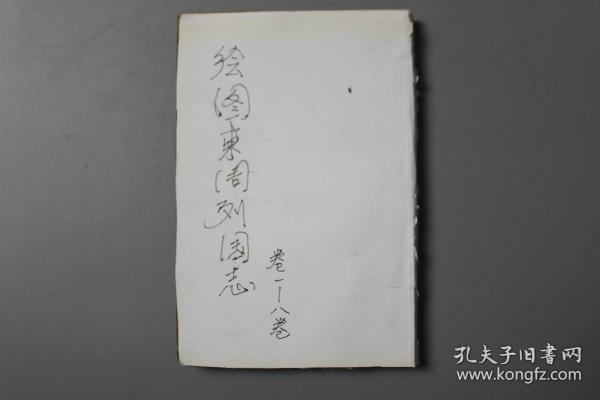 绘图東周列國志
卷一—八卷
孔夫子旧書网
www.kongfz.com